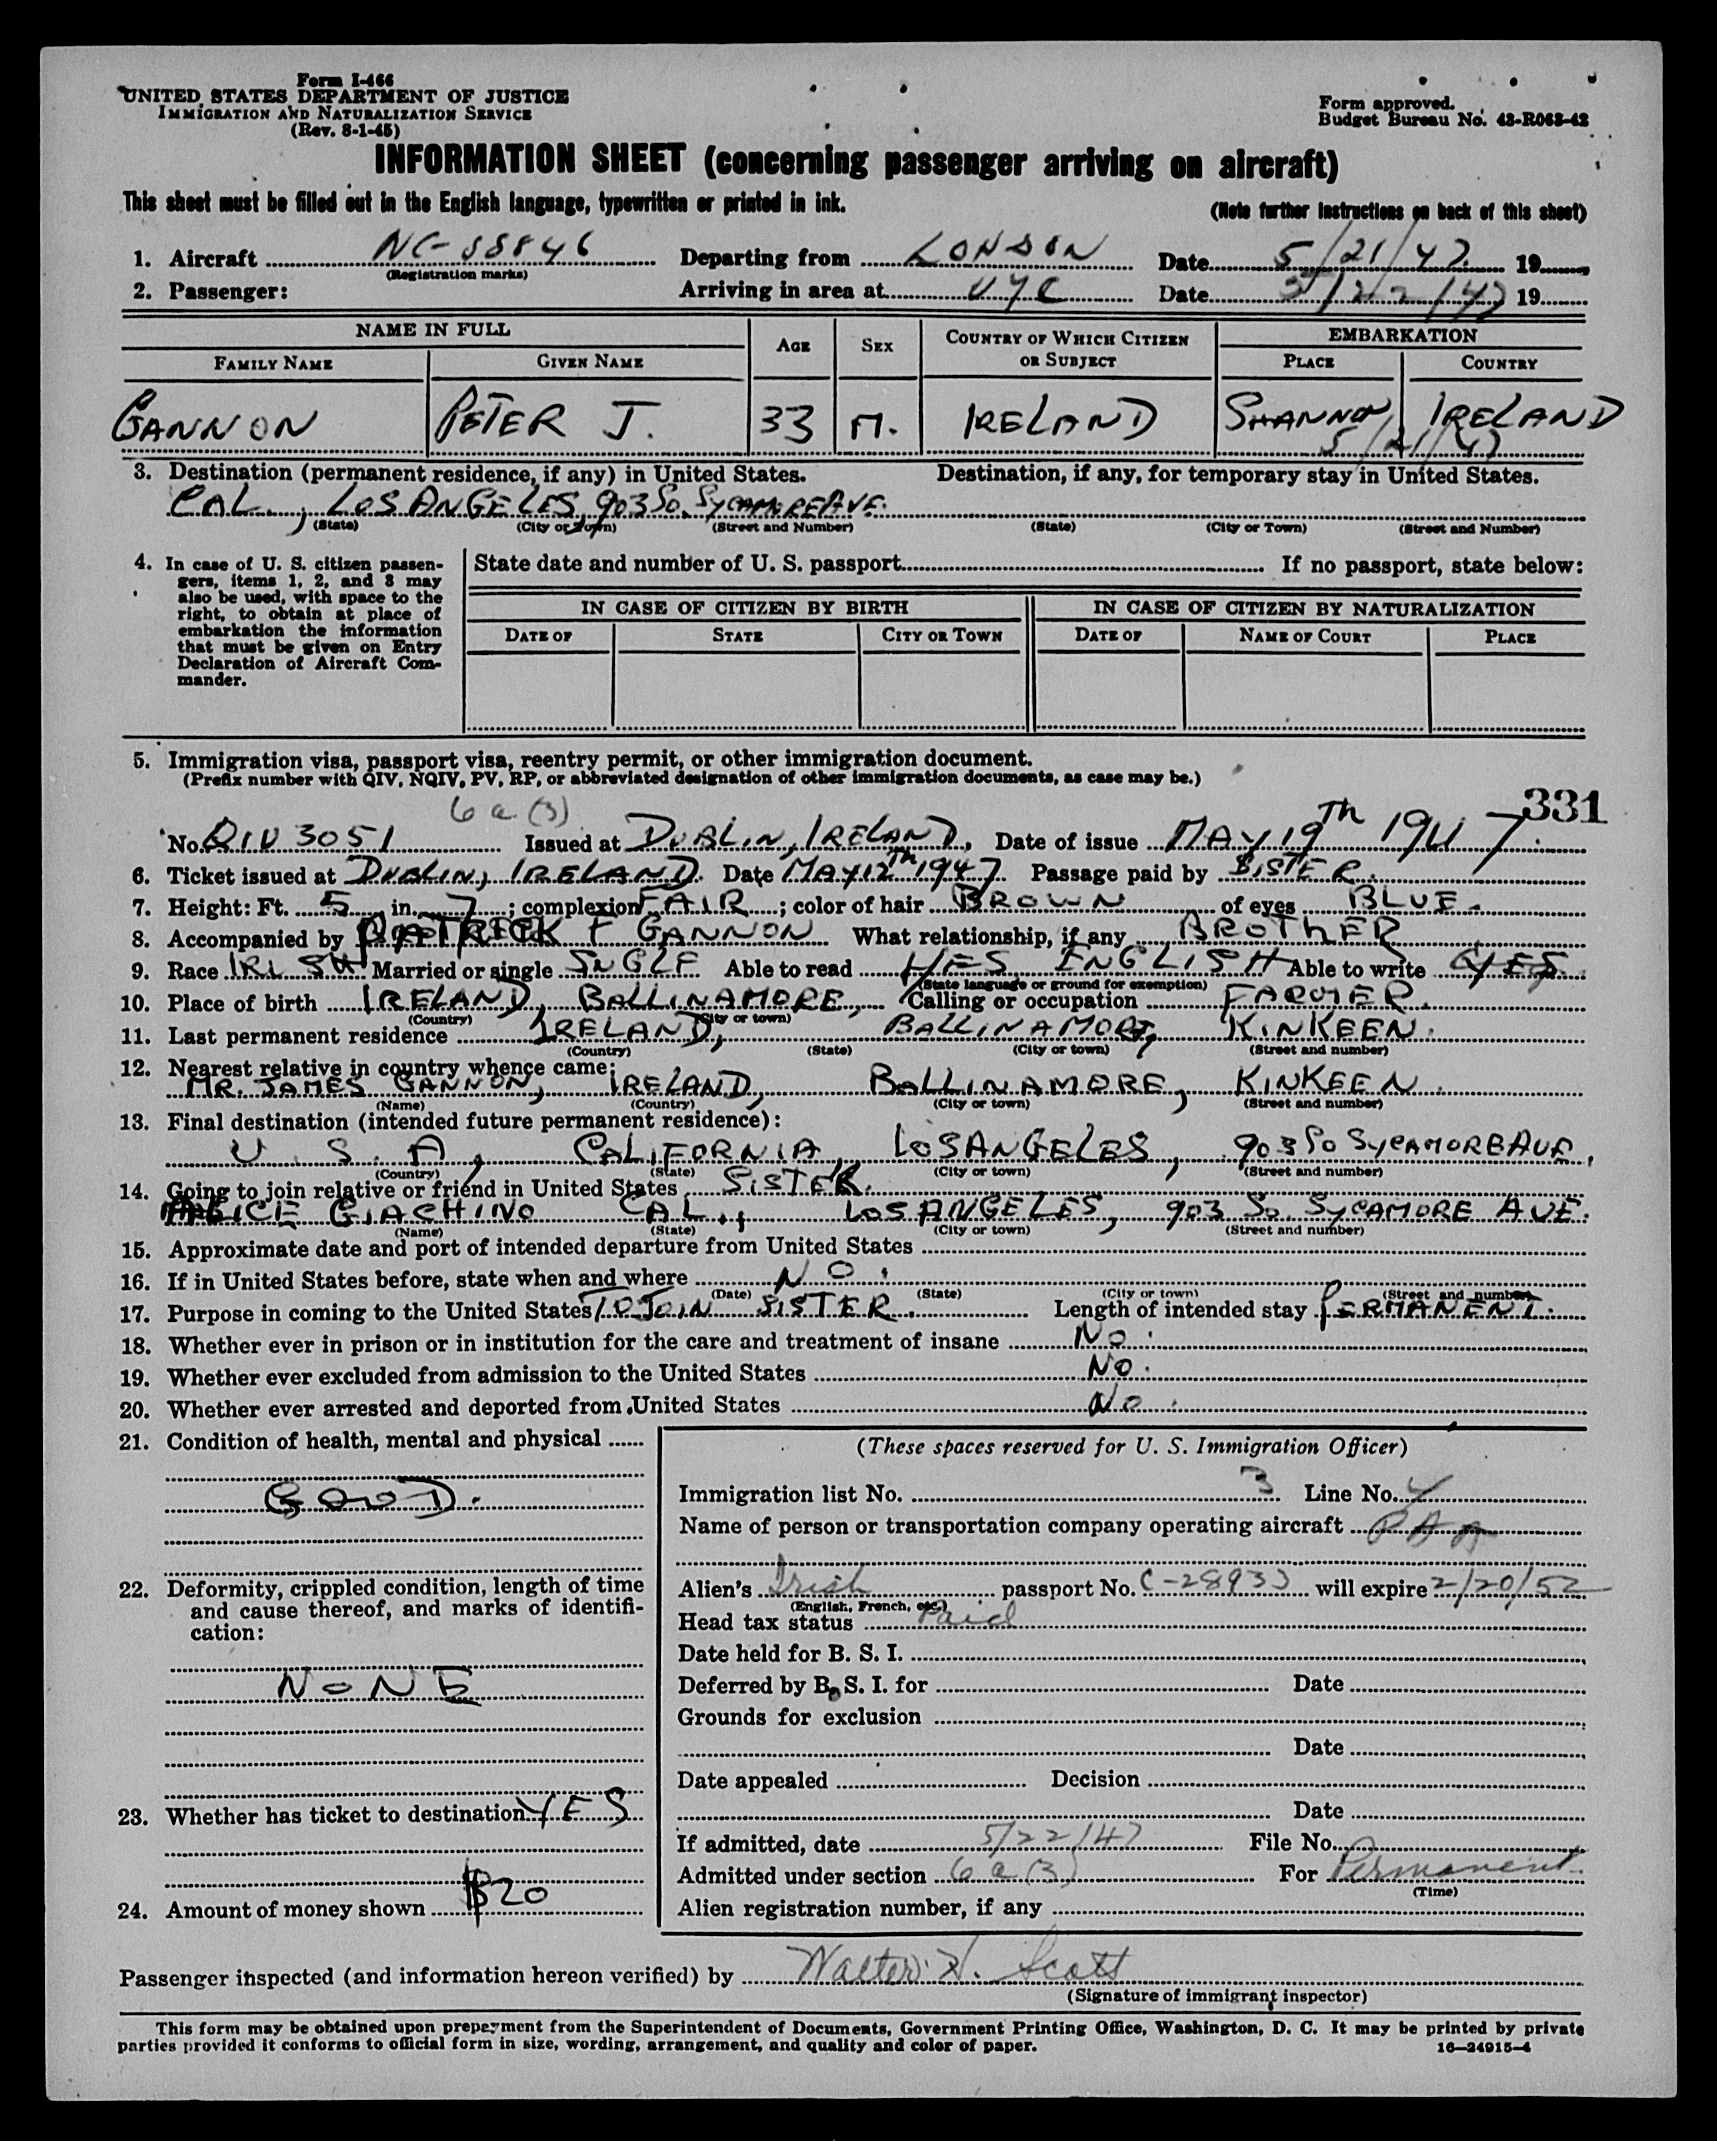 Form I-466
UNITED STATES DEPARTMENT OF JUSTICE
IMMIGRATION AND NATURALIZATION SERVICE
(Rev. 8-1-45)
Form approved.
Budget Bureau No. 43-R068-42
INFORMATION SHEET (concerning passenger arriving on aircraft)
This sheet must be filled out in the English language, typewritten or printed in ink.
(Note further instructions on back of this sheet)
1. Aircraft NC-88846 Departing from LONDON Date 5/21/47 19
(Registration marks)
2. Passenger: Arriving in area at NYC Date 5/22/47 19
NAME IN FULL AGE SEX COUNTRY OF WHICH CITIZEN OR SUBJECT EMBARKATION
FAMILY NAME GIVEN NAME PLACE COUNTRY
GANNON PETER J. 33 M. IRELAND SHANNON IRELAND
5/21/47
3. Destination (permanent residence, if any) in United States. Destination, if any, for temporary stay in United States.
CAL., LOS ANGELES, 903 SO. SYCAMORE AVE.
(State) (City or Town) (Street and Number) (State) (City or Town) (Street and Number)
4. In case of U. S. citizen passengers, items 1, 2, and 3 may also be used, with space to the right, to obtain at place of embarkation the information that must be given on Entry Declaration of Aircraft Commander.
State date and number of U. S. passport If no passport, state below:
IN CASE OF CITIZEN BY BIRTH IN CASE OF CITIZEN BY NATURALIZATION
DATE OF STATE CITY OR TOWN DATE OF NAME OF COURT PLACE
5. Immigration visa, passport visa, reentry permit, or other immigration document.
(Prefix number with QIV, NQIV, PV, RP, or abbreviated designation of other immigration documents, as case may be.)
6 a (3)
331
No. QIV 3051 Issued at DUBLIN, IRELAND, Date of issue MAY 19TH 1947
6. Ticket issued at DUBLIN, IRELAND. Date MAY 12TH 1947. Passage paid by SISTER.
7. Height: Ft. 5 in. 7; complexion FAIR; color of hair BROWN of eyes BLUE.
8. Accompanied by PATRICK F GANNON What relationship, if any BROTHER
9. Race IRISH Married or single SNGLE Able to read YES ENGLISH Able to write YES.
(State language or ground for exemption)
10. Place of birth IRELAND, BALLINAMORE, Calling or occupation FARMER.
(Country) (City or town)
11. Last permanent residence IRELAND, BALLINAMORE, KINKEEN.
(Country) (State) (City or town) (Street and number)
12. Nearest relative in country whence came:
MR. JAMES GANNON, IRELAND, BALLINAMORE, KINKEEN.
(Name) (Country) (City or town) (Street and number)
13. Final destination (intended future permanent residence):
U.S.A, CALIFORNIA, LOS ANGELES, 903 SO SYCAMORE AVE,
(Country) (State) (City or town) (Street and number)
14. Going to join relative or friend in United States SISTER.
ALICE GIACHINO CAL., LOS ANGELES, 903 SO. SYCAMORE AVE.
(Name) (State) (City or town) (Street and number)
15. Approximate date and port of intended departure from United States
16. If in United States before, state when and where NO.
(Date) (State) (City or town) (Street and number)
17. Purpose in coming to the United States TO JOIN SISTER. Length of intended stay PERMANENT.
18. Whether ever in prison or in institution for the care and treatment of insane NO.
19. Whether ever excluded from admission to the United States NO.
20. Whether ever arrested and deported from United States NO.
21. Condition of health, mental and physical
GOOD.
22. Deformity, crippled condition, length of time and cause thereof, and marks of identification:
NONE
23. Whether has ticket to destination YES
24. Amount of money shown $20
(These spaces reserved for U. S. Immigration Officer)
Immigration list No. 3 Line No. 4
Name of person or transportation company operating aircraft PAA
Alien's Irish passport No. C-28933 will expire 2/20/52
(English, French, etc.)
Head tax status Paid
Date held for B. S. I.
Deferred by B. S. I. for Date
Grounds for exclusion
Date
Date appealed Decision
Date
If admitted, date 5/22/47 File No.
Admitted under section 6 a (3) For Permanent
(Time)
Alien registration number, if any
Passenger inspected (and information hereon verified) by Walter H. Scott
(Signature of immigrant inspector)
This form may be obtained upon prepayment from the Superintendent of Documents, Government Printing Office, Washington, D. C. It may be printed by private
parties provided it conforms to official form in size, wording, arrangement, and quality and color of paper.
16—24915-4